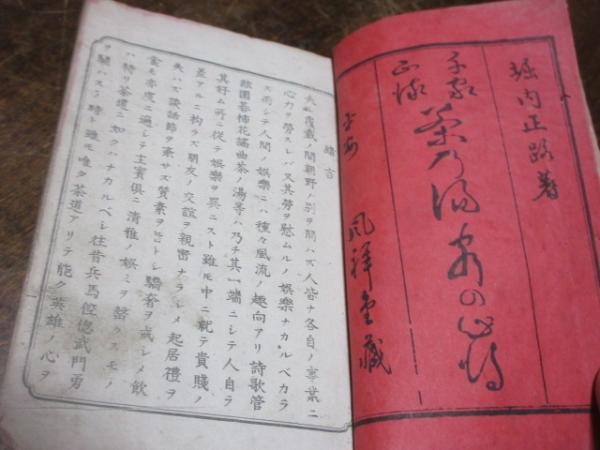 堀内正路著
千家
正流
茶乃湯客の心得
平安
風祥堂藏
緒言
夫レ覆載ノ間朝野ノ別ヲ問ハズ人皆ナ各自ノ事業ニ
心力ヲ勞スレバ又其勞ヲ慰ムルノ娯樂ナカルベカラ
ズ而シテ人間ノ娯樂ニハ種々風流ノ趣向アリ詩歌管
絃圍碁插花謠曲茶ノ湯等ハ乃チ其一端ニシテ人自ラ
其好ム所ニ從テ娯樂ヲ異ニスト雖モ中ニ就テ貴賤ノ
差アルニ拘ラズ朋友ノ交誼ヲ親密ナラシメ起居禮ヲ
失ハズ談話節ヲ紊サズ質素ヲ旨トシ驕奢ヲ戒シメ飲
食モ亦度ニ適シテ主賓俱ニ清雅ノ娯ミヲ罄クスモノ
ハ特リ茶道ニ如クハナカルベシ往昔兵馬倥偬武門勇
ヲ騁ハスノ時ト雖モ唯タ茶道アリテ能ク英雄ノ心ヲ
一